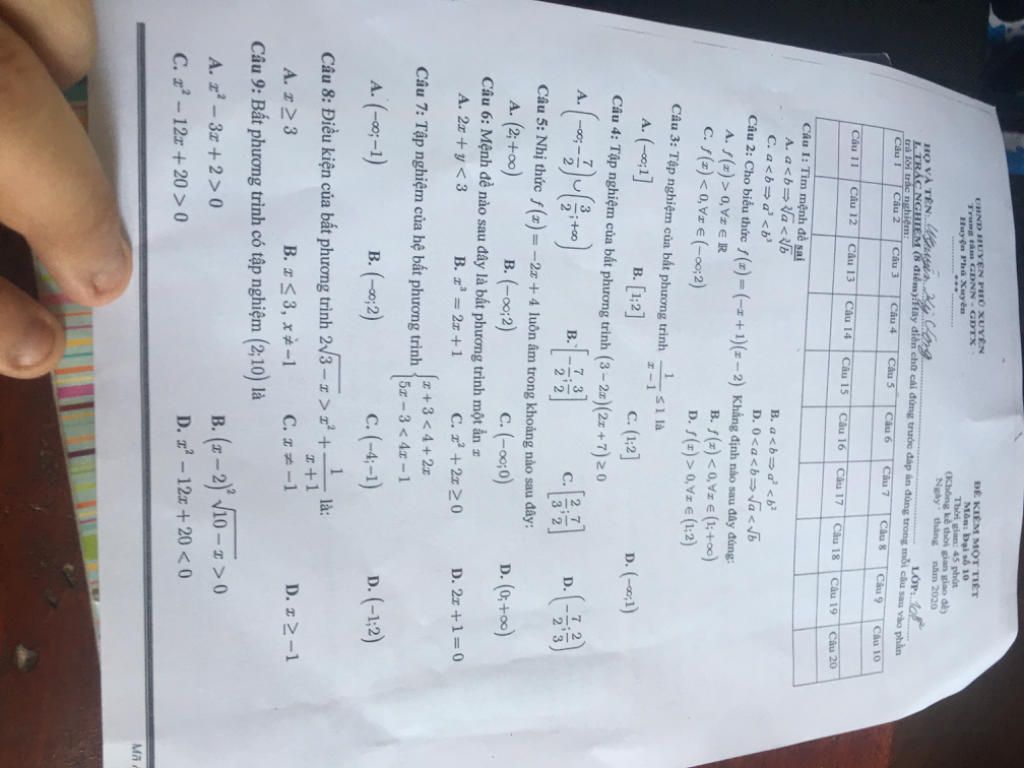 UBND HUYỆN PHÚ XUYÊN
Trung tâm GDNN - GDTX
Huyện Phú Xuyên
.......... *** ..........
ĐỀ KIỂM MỘT TIẾT
Môn: Đại số 10
Thời gian: 45 phút
(Không kể thời gian giao đề)
Ngày tháng năm 2020
HỌ VÀ TÊN: LỚP:
I. TRẮC NGHIỆM (8 điểm): Hãy điền chữ cái đúng trước đáp án đúng trong mỗi câu sau vào phần
trả lời trắc nghiệm:
Câu 1 Câu 2 Câu 3 Câu 4 Câu 5 Câu 6 Câu 7 Câu 8 Câu 9 Câu 10
Câu 11 Câu 12 Câu 13 Câu 14 Câu 15 Câu 16 Câu 17 Câu 18 Câu 19 Câu 20
Câu 1: Tìm mệnh đề sai
A. a < b ⇒ ∛a < ∛b B. a < b ⇒ a² < b²
C. a < b ⇒ a³ < b³ D. 0 < a < b ⇒ √a < √b
Câu 2: Cho biểu thức f(x) = (−x + 1)(x − 2) Khẳng định nào sau đây đúng:
A. f(x) > 0, ∀x ∈ ℝ B. f(x) < 0, ∀x ∈ (1; +∞)
C. f(x) < 0, ∀x ∈ (−∞; 2) D. f(x) > 0, ∀x ∈ (1; 2)
Câu 3: Tập nghiệm của bất phương trình 1/(x − 1) ≤ 1 là
A. (−∞; 1] B. [1; 2] C. (1; 2] D. (−∞; 1)
Câu 4: Tập nghiệm của bất phương trình (3 − 2x)(2x + 7) ≥ 0
A. (−∞; −7/2) ∪ (3/2; +∞) B. [−7/2; 3/2] C. [2/3; 7/2] D. (−7/2; 2/3)
Câu 5: Nhị thức f(x) = −2x + 4 luôn âm trong khoảng nào sau đây:
A. (2; +∞) B. (−∞; 2) C. (−∞; 0) D. (0; +∞)
Câu 6: Mệnh đề nào sau đây là bất phương trình một ẩn x
A. 2x + y < 3 B. x³ = 2x + 1 C. x² + 2x ≥ 0 D. 2x + 1 = 0
Câu 7: Tập nghiệm của hệ bất phương trình { x + 3 < 4 + 2x
5x − 3 < 4x − 1
A. (−∞; −1) B. (−∞; 2) C. (−4; −1) D. (−1; 2)
Câu 8: Điều kiện của bất phương trình 2√(3 − x) > x² + 1/(x + 1) là:
A. x ≥ 3 B. x ≤ 3, x ≠ −1 C. x ≠ −1 D. x ≥ −1
Câu 9: Bất phương trình có tập nghiệm (2; 10) là
A. x² − 3x + 2 > 0 B. (x − 2)² √(10 − x) > 0
C. x² − 12x + 20 > 0 D. x² − 12x + 20 < 0